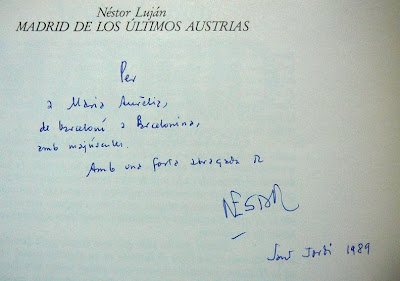 Néstor Luján
MADRID DE LOS ÚLTIMOS AUSTRIAS
Per
a Maria Aurèlia,
de barceloní a Barcelonina,
amb majúscules.
Amb una forta abraçada
NESTOR
Sant Jordi 1989